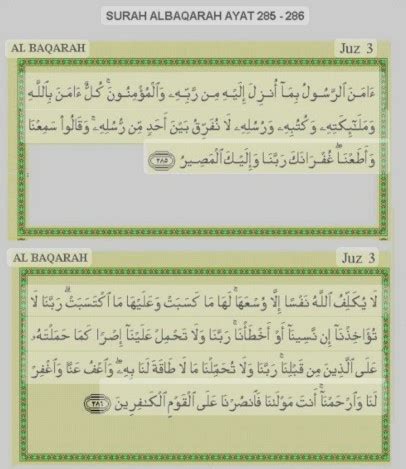 SURAH ALBAQARAH AYAT 285 - 286
AL BAQARAH Juz 3
ءَامَنَ ٱلرَّسُولُ بِمَآ أُنزِلَ إِلَيْهِ مِن رَّبِّهِۦ وَٱلْمُؤْمِنُونَ ۚ كُلٌّ ءَامَنَ بِٱللَّهِ
وَمَلَـٰٓئِكَتِهِۦ وَكُتُبِهِۦ وَرُسُلِهِۦ لَا نُفَرِّقُ بَيْنَ أَحَدٍ مِّن رُّسُلِهِۦ ۚ وَقَالُوا۟ سَمِعْنَا
وَأَطَعْنَا ۖ غُفْرَانَكَ رَبَّنَا وَإِلَيْكَ ٱلْمَصِيرُ ٢٨٥
AL BAQARAH Juz 3
لَا يُكَلِّفُ ٱللَّهُ نَفْسًا إِلَّا وُسْعَهَا ۚ لَهَا مَا كَسَبَتْ وَعَلَيْهَا مَا ٱكْتَسَبَتْ ۗ رَبَّنَا لَا
تُؤَاخِذْنَآ إِن نَّسِينَآ أَوْ أَخْطَأْنَا ۚ رَبَّنَا وَلَا تَحْمِلْ عَلَيْنَآ إِصْرًا كَمَا حَمَلْتَهُۥ
عَلَى ٱلَّذِينَ مِن قَبْلِنَا ۚ رَبَّنَا وَلَا تُحَمِّلْنَا مَا لَا طَاقَةَ لَنَا بِهِۦ ۖ وَٱعْفُ عَنَّا وَٱغْفِرْ
لَنَا وَٱرْحَمْنَآ ۚ أَنتَ مَوْلَىٰنَا فَٱنصُرْنَا عَلَى ٱلْقَوْمِ ٱلْكَـٰفِرِينَ ٢٨٦